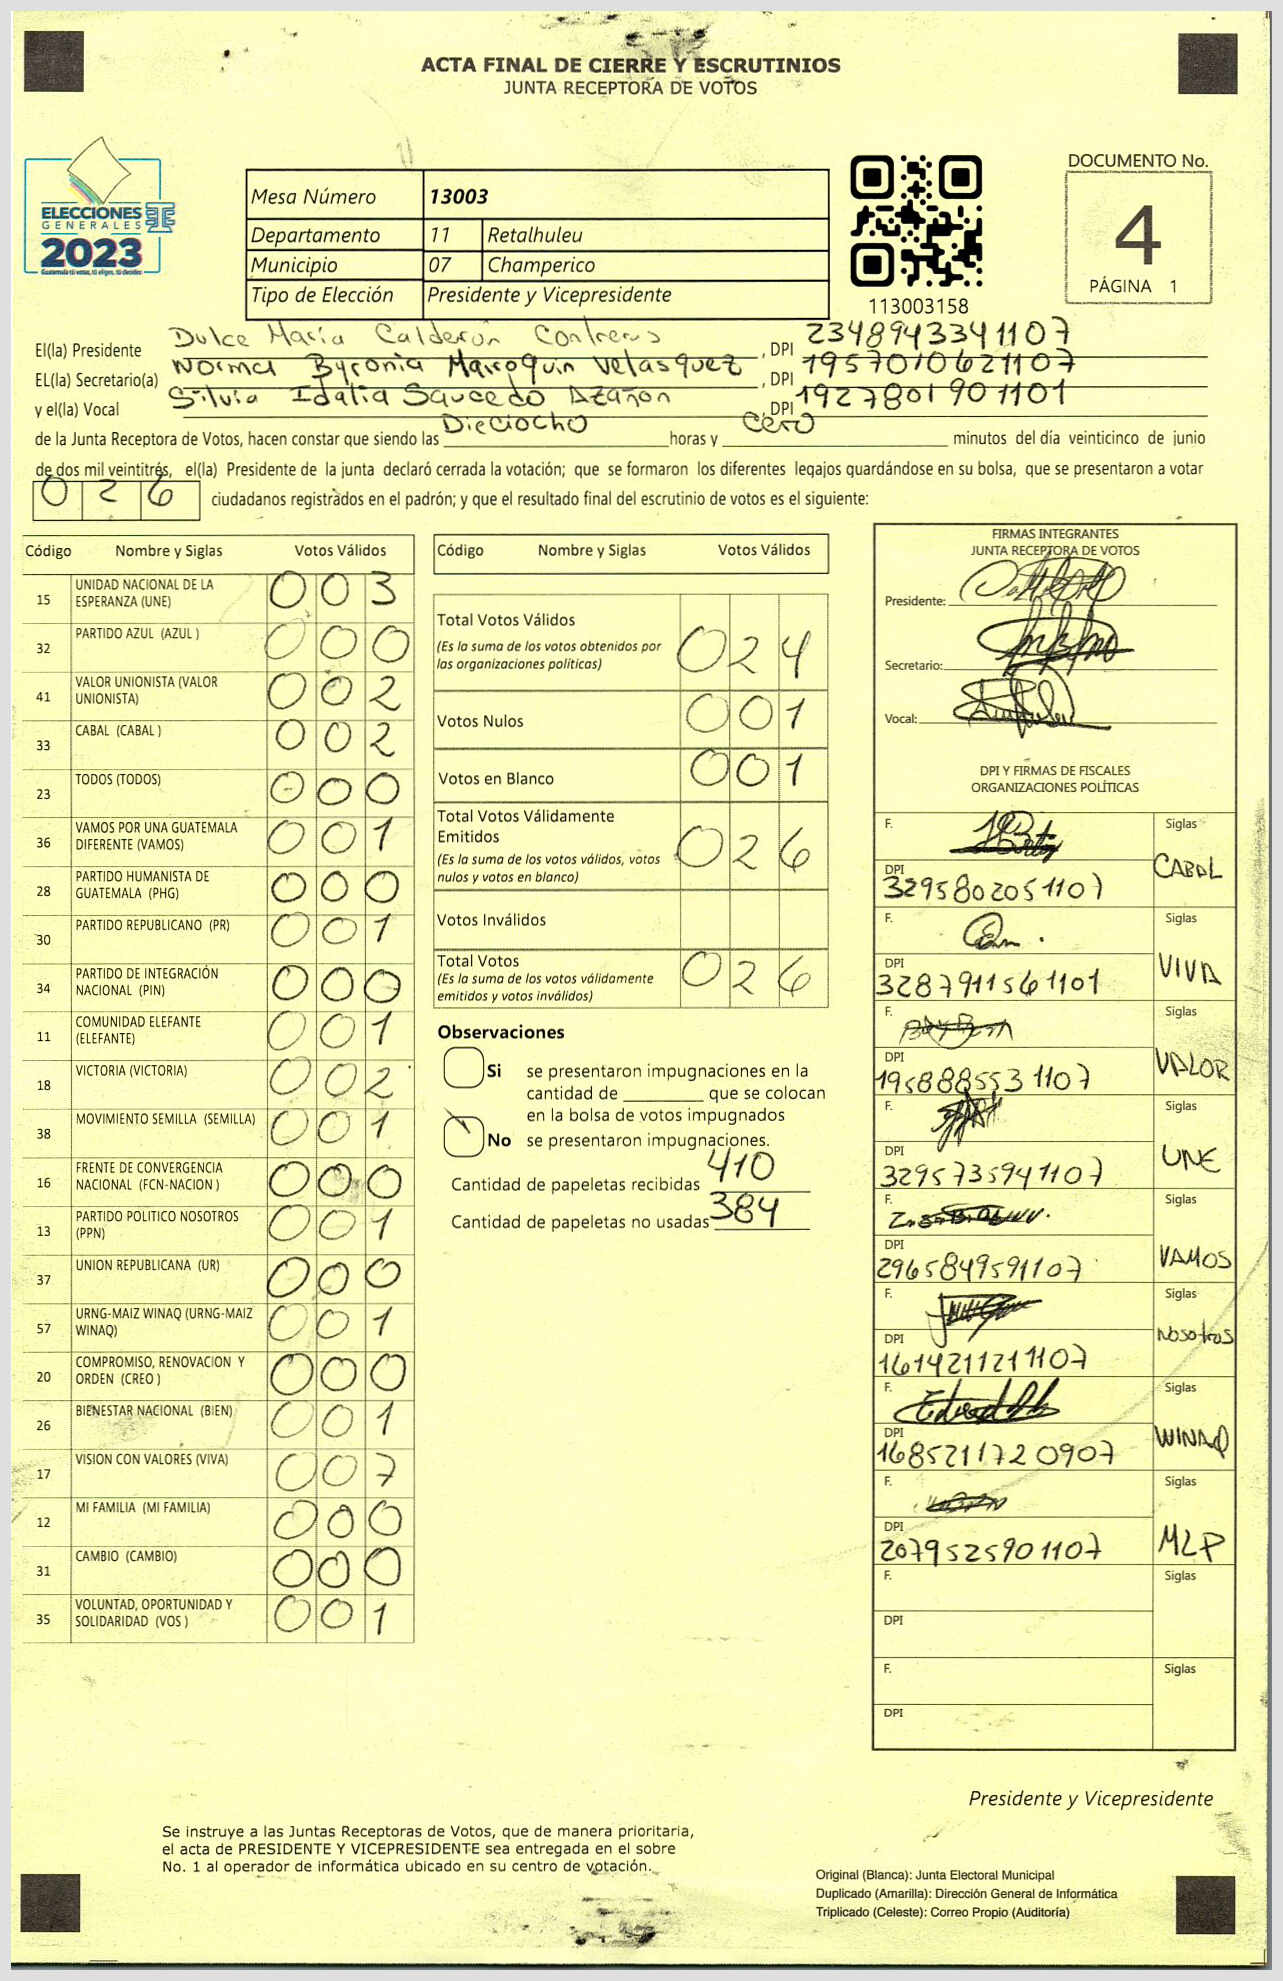 ACTA FINAL DE CIERRE Y ESCRUTINIOS
JUNTA RECEPTORA DE VOTOS
ELECCIONES
GENERALES
2023
Guatemala tú votas, tú eliges, tú decides
Mesa Número 13003
Departamento 11 Retalhuleu
Municipio 07 Champerico
Tipo de Elección Presidente y Vicepresidente
113003158
DOCUMENTO No.
4
PÁGINA 1
El(la) Presidente Dulce María Calderón Contreras, DPI 2348943341107
EL(la) Secretario(a) Norma Byronia Marroquin Velasquez, DPI 1957010621107
y el(la) Vocal Silvia Idalia Saucedo Azañon, DPI 1927801901101
de la Junta Receptora de Votos, hacen constar que siendo las Dieciocho horas y Cero minutos del día veinticinco de junio
de dos mil veintitrés, el(la) Presidente de la junta declaró cerrada la votación; que se formaron los diferentes legajos guardándose en su bolsa, que se presentaron a votar
026 ciudadanos registrados en el padrón; y que el resultado final del escrutinio de votos es el siguiente:
Código Nombre y Siglas Votos Válidos
15 UNIDAD NACIONAL DE LA ESPERANZA (UNE) 003
32 PARTIDO AZUL (AZUL ) 000
41 VALOR UNIONISTA (VALOR UNIONISTA) 002
33 CABAL (CABAL ) 002
23 TODOS (TODOS) 000
36 VAMOS POR UNA GUATEMALA DIFERENTE (VAMOS) 001
28 PARTIDO HUMANISTA DE GUATEMALA (PHG) 000
30 PARTIDO REPUBLICANO (PR) 001
34 PARTIDO DE INTEGRACIÓN NACIONAL (PIN) 000
11 COMUNIDAD ELEFANTE (ELEFANTE) 001
18 VICTORIA (VICTORIA) 002
38 MOVIMIENTO SEMILLA (SEMILLA) 001
16 FRENTE DE CONVERGENCIA NACIONAL (FCN-NACION ) 000
13 PARTIDO POLITICO NOSOTROS (PPN) 001
37 UNION REPUBLICANA (UR) 000
57 URNG-MAIZ WINAQ (URNG-MAIZ WINAQ) 001
20 COMPROMISO, RENOVACION Y ORDEN (CREO ) 000
26 BIENESTAR NACIONAL (BIEN) 001
17 VISION CON VALORES (VIVA) 007
12 MI FAMILIA (MI FAMILIA) 000
31 CAMBIO (CAMBIO) 000
35 VOLUNTAD, OPORTUNIDAD Y SOLIDARIDAD (VOS ) 001
Código Nombre y Siglas Votos Válidos
Total Votos Válidos 024
(Es la suma de los votos obtenidos por
las organizaciones políticas)
Votos Nulos 001
Votos en Blanco 001
Total Votos Válidamente
Emitidos 026
(Es la suma de los votos válidos, votos
nulos y votos en blanco)
Votos Inválidos
Total Votos 026
(Es la suma de los votos válidamente
emitidos y votos inválidos)
Observaciones
Si se presentaron impugnaciones en la
cantidad de ________ que se colocan
en la bolsa de votos impugnados
No se presentaron impugnaciones.
Cantidad de papeletas recibidas 410
Cantidad de papeletas no usadas 384
FIRMAS INTEGRANTES
JUNTA RECEPTORA DE VOTOS
Presidente:
Secretario:
Vocal:
DPI Y FIRMAS DE FISCALES
ORGANIZACIONES POLÍTICAS
F. Siglas
DPI 3295802051107 CABAL
F. Siglas
DPI 3287911561101 VIVA
F. Siglas
DPI 1958885531107 VALOR
F. Siglas
DPI 3295735941107 UNE
F. Siglas
DPI 2965849591107 VAMOS
F. Siglas
DPI 1614211211107 Nosotros
F. Siglas
DPI 1685211720907 WINAQ
F. Siglas
DPI 2079525901107 MLP
F. Siglas
DPI
F. Siglas
DPI
Presidente y Vicepresidente
Se instruye a las Juntas Receptoras de Votos, que de manera prioritaria,
el acta de PRESIDENTE Y VICEPRESIDENTE sea entregada en el sobre
No. 1 al operador de informática ubicado en su centro de votación.
Original (Blanca): Junta Electoral Municipal
Duplicado (Amarilla): Dirección General de Informática
Triplicado (Celeste): Correo Propio (Auditoría)